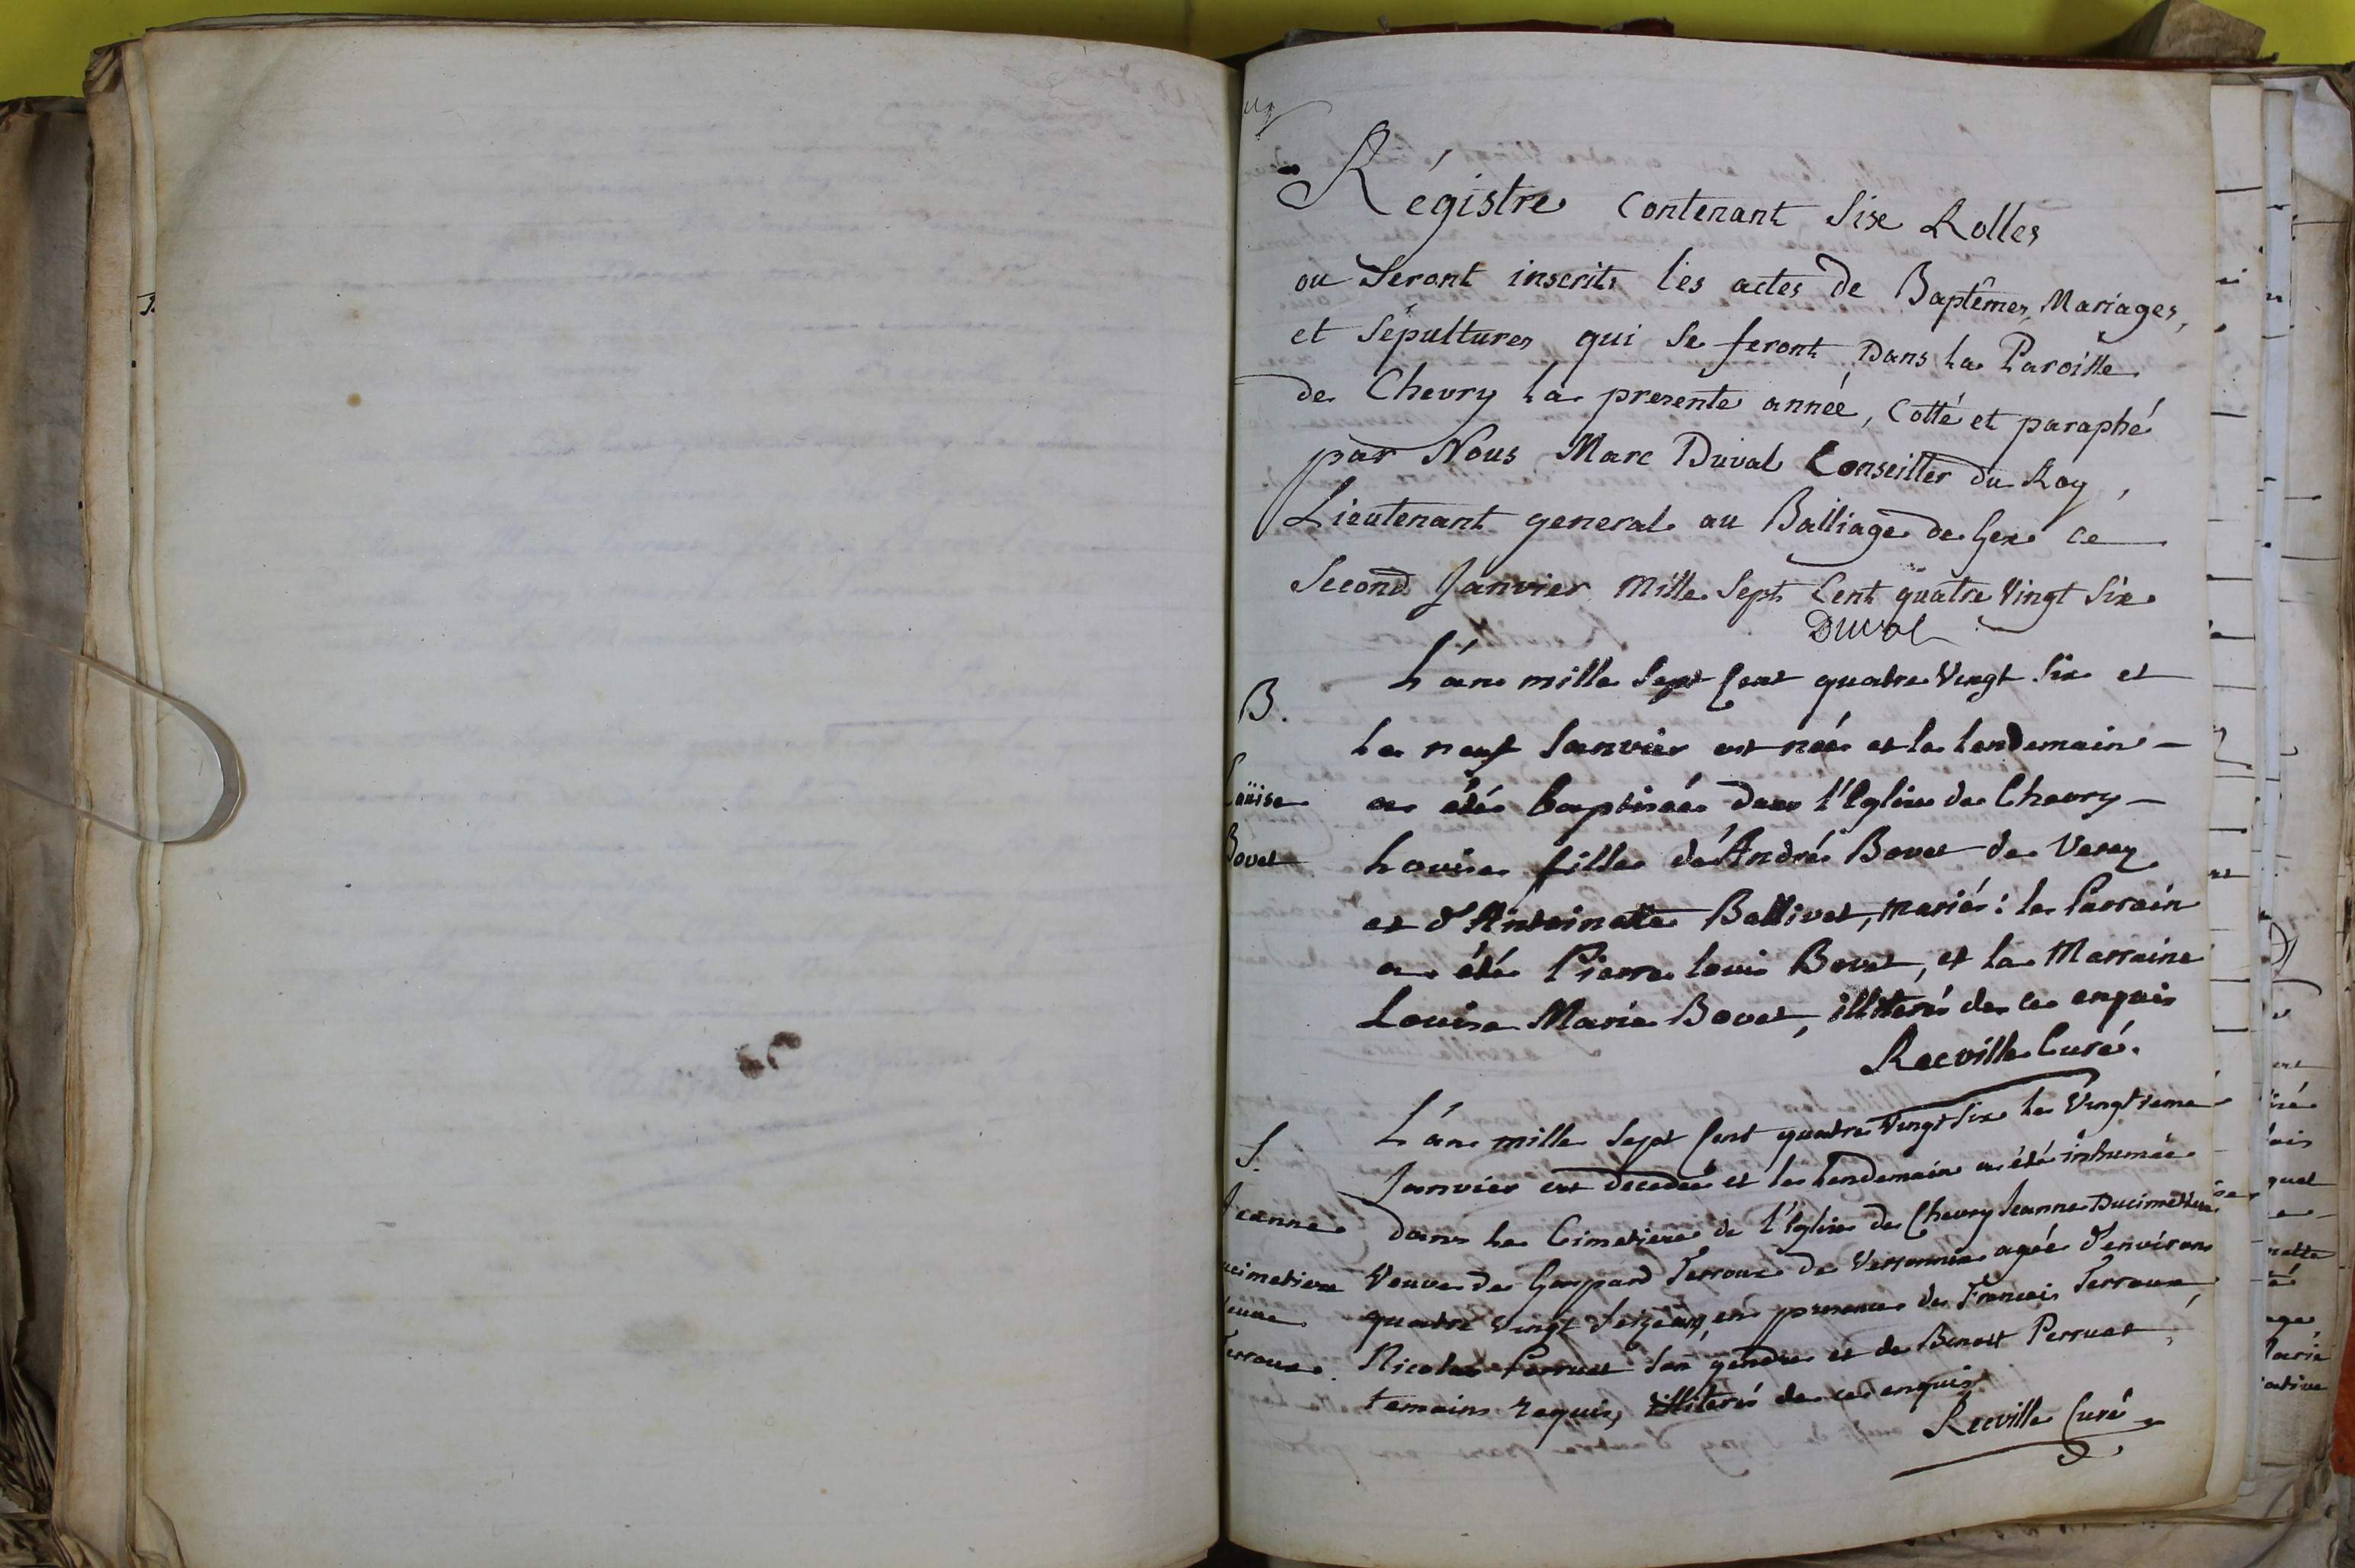 Régistre Contenant Six Rolles
ou Seront inscrits les actes de Baptêmes, Mariages,
et Sépultures qui Se feront Dans la Paroisse
de Chevry la presente année, Cotté et paraphé
par Nous Marc Duval Conseiller du Roy,
Lieutenant general au Balliage de Gex ce
Second Janvier Mille Sept Cent quatre Vingt Six
Duval
B.
L'an mille Sept Cent quatre Vingt Six et
le neuf Janvier est née et le lendemain
Loüise
a été baptisée dans l'Eglise de Chevry
Bovet
Louise fille d'André Bovet de Veraz
et d'Antoinette Ballivet, mariés : le Parrain
a été Pierre louis Bovet, et la Marraine
Louise Marie Bovet, illiterés de ce enquis
Recville Curé.
S.
L'an mille Sept Cent quatre Vingt Six le Vingtieme
Janvier est decedée et le lendemain a été inhumée
Jeanne
dans le Cimetiere de l'Eglise de Chevry Jeanne Ducimetiere
ucimetiere
Veuve de Gaspard Terroux de Versonnex agée d'environ
veuve
quatre vingt Seize ans, en presence de Francois Terroux,
Terroux.
Nicolas Perruet Son gendre et de Benoit Perruet,
temoins requis, illiterés de ce enquis
Recville Curé